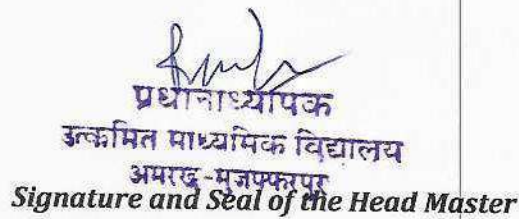 प्रधानाध्यापक
उत्क्रमित माध्यमिक विद्यालय
अमरख-मुजफ्फरपुर
Signature and Seal of the Head Master